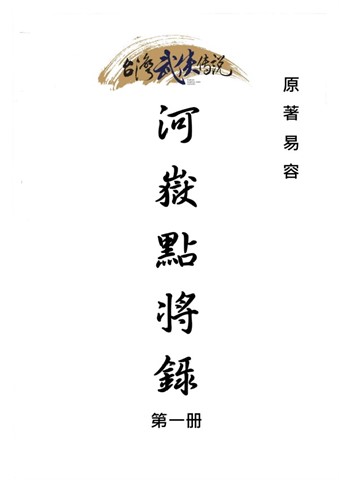 台灣武俠傳說
原著易容
河嶽點將錄
第一册